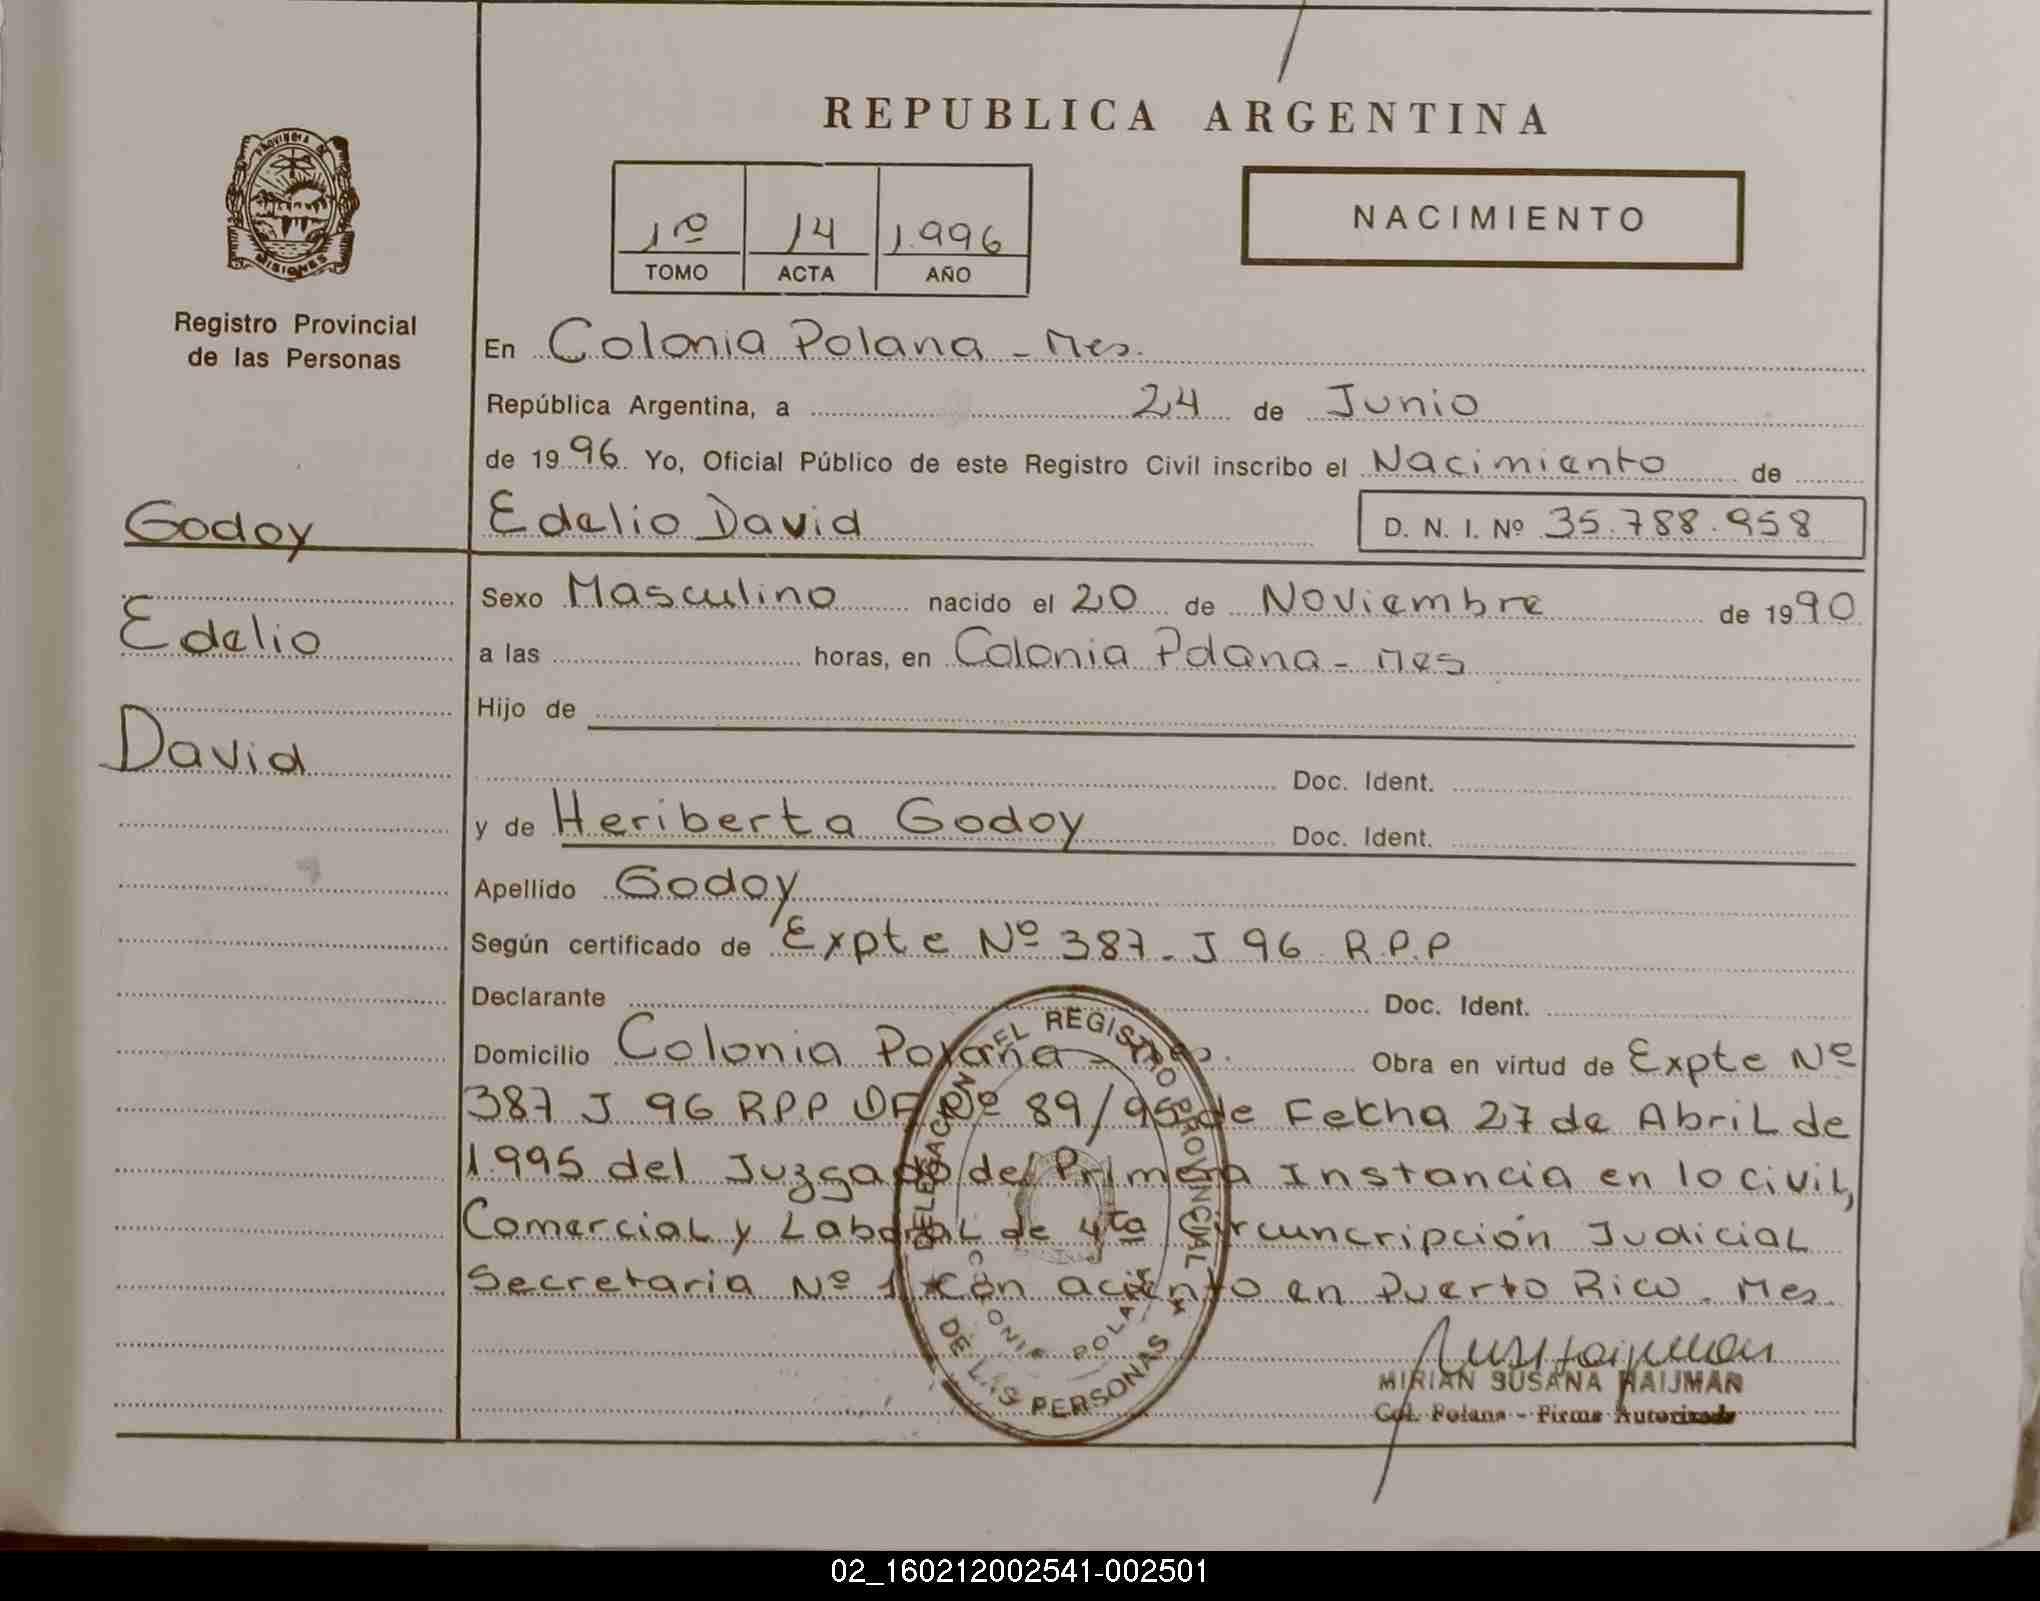 REPUBLICA ARGENTINA
PROVINCIA DE
MISIONES
Registro Provincial
de las Personas
1º 14 1.996
TOMO ACTA AÑO
NACIMIENTO
En Colonia Polana - Mes.
República Argentina, a 24 de Junio
de 19 96. Yo, Oficial Público de este Registro Civil inscribo el Nacimiento de
Godoy
Edelio David D. N. I. Nº 35.788.958
Sexo Masculino nacido el 20 de Noviembre de 19 90
Edelio
a las horas, en Colonia Polana - Mes
Hijo de
David
Doc. Ident.
y de Heriberta Godoy Doc. Ident.
Apellido Godoy
Según certificado de Expte Nº 387 - J 96 R.P.P
Declarante Doc. Ident.
Domicilio Colonia Polana - Mes. Obra en virtud de Expte Nº
387 J 96 R.P.P Nº 89/95 de Fecha 27 de Abril de
1.995 del Juzgado de Primera Instancia en lo Civil,
Comercial y Laboral de 4ta Circuncripción Judicial
Secretaria Nº 1 con aciento en Puerto Rico. Mes.
DELEGACION DEL REGISTRO PROVINCIAL
DE LAS PERSONAS
COLONIA POLANA
MIRIAN SUSANA HAIJMAN
Col. Polana - Firma Autorizada
02_160212002541-002501